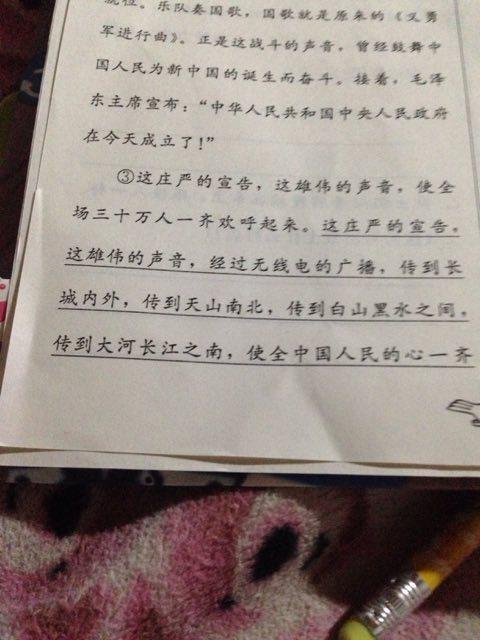 就位。乐队奏国歌，国歌就是原来的《义勇
军进行曲》。正是这战斗的声音，曾经鼓舞中
国人民为新中国的诞生而奋斗。接着，毛泽
东主席宣布：“中华人民共和国中央人民政府
在今天成立了！”
③这庄严的宣告，这雄伟的声音，使全
场三十万人一齐欢呼起来。这庄严的宣告，
这雄伟的声音，经过无线电的广播，传到长
城内外，传到天山南北，传到白山黑水之间，
传到大河长江之南，使全中国人民的心一齐